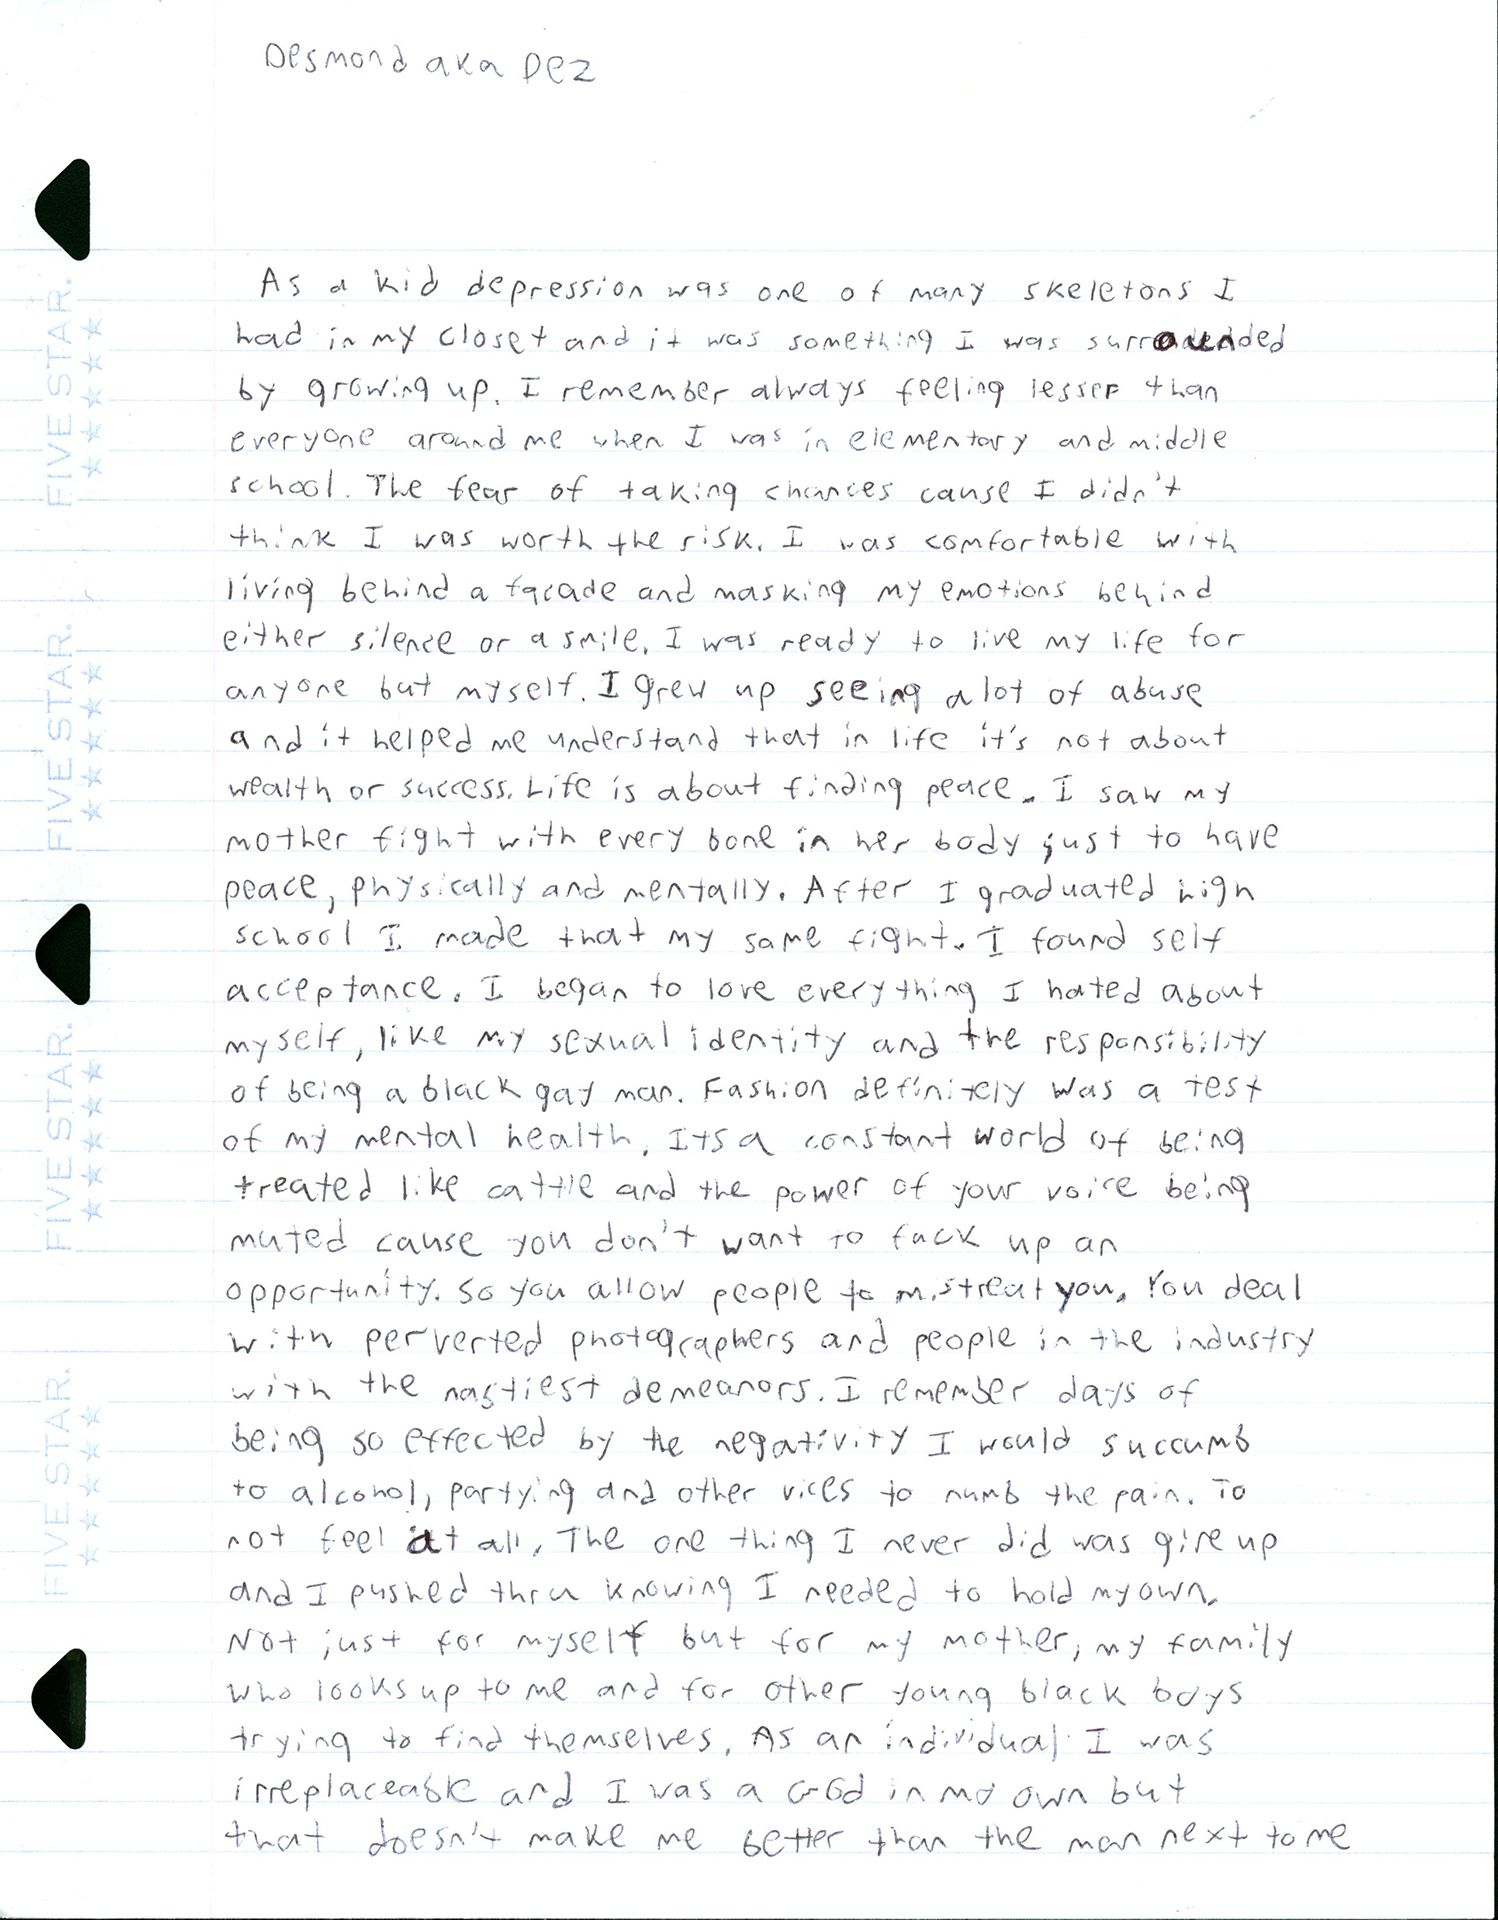 Desmond aka Dez
As a kid depression was one of many skeletons I
had in my closet and it was something I was surrounded
by growing up. I remember always feeling lesser than
everyone around me when I was in elementary and middle
school. The fear of taking chances cause I didn't
think I was worth the risk. I was comfortable with
living behind a facade and masking my emotions behind
either silence or a smile. I was ready to live my life for
anyone but myself. I grew up seeing alot of abuse
and it helped me understand that in life it's not about
wealth or success. Life is about finding peace. I saw my
mother fight with every bone in her body just to have
peace, physically and mentally. After I graduated high
school I made that my same fight. I found self
acceptance. I began to love everything I hated about
myself, like my sexual identity and the responsibility
of being a black gay man. Fashion definitely was a test
of my mental health. Its a constant world of being
treated like cattle and the power of your voice being
muted cause you don't want to fuck up an
opportunity. So you allow people to mistreat you. You deal
with perverted photographers and people in the industry
with the nastiest demeanors. I remember days of
being so effected by the negativity I would succumb
to alcohol, partying and other vices to numb the pain. To
not feel at all. The one thing I never did was give up
and I pushed thru knowing I needed to hold my own.
Not just for myself but for my mother, my family
who looks up to me and for other young black boys
trying to find themselves. As an individual I was
irreplaceable and I was a God in my own but
that doesn't make me better than the man next to me
FIVE STAR.
FIVE STAR.
FIVE STAR.
FIVE STAR.